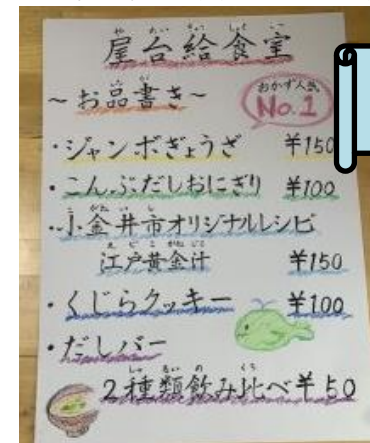 屋台給食室
~お品書き~
おかず人気
No.1
・ジャンボぎょうざ ¥150
・こんぶだしおにぎり ¥100
・小金井市オリジナルレシピ
江戸黄金汁 ¥150
・くじらクッキー ¥100
・だしバー
2種類飲み比べ ¥50